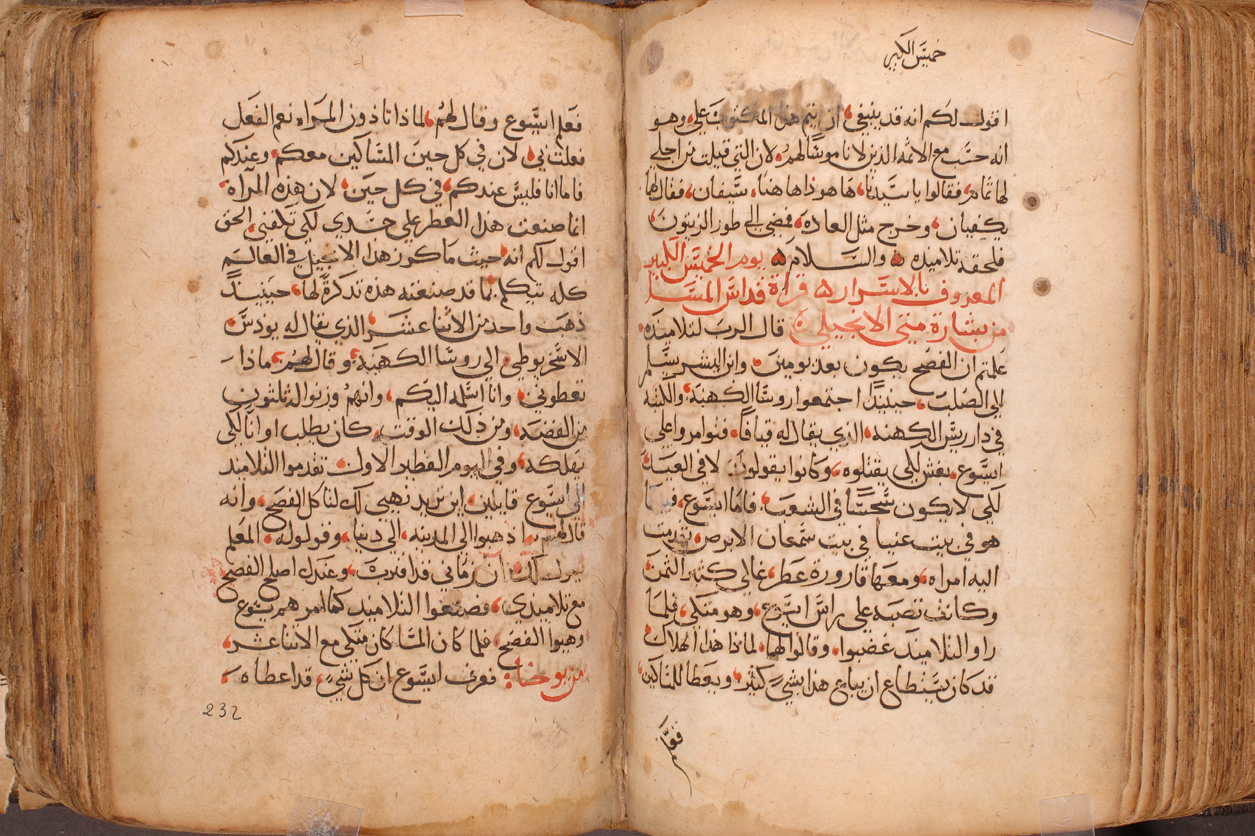 خميس الكبير
اقول لكم انه قد ينبغي ان يتم هذا المكتوب علي وهو
انه حسب مع الاثمه الذين لا ناموسًا لهم لان التي قيلت من اجلي
لها تمام فقالوا يا سيدنا ها هوذا ها هنا سيفان فقال لها
يكفيان وخرج مثل العاده فمضي الى طور الزيتون
فلحقه تلاميذه والسلام يوم الخميس الكبير
المعروف بالاسرار قراة قداس المسا
من بشارة متى الانجيلي قال الرب لتلاميذه
علمتم ان الفصح يكون بعد يومين وابن البشر يسلم
الى الصلب حينيذًا اجتمعوا روسًا الكهنة والكتبه
في دار ريس الكهنه الذي يقال له قيافًا فتوامروا على
ايسوع بغش لكي يقتلوه وكانوا يقولون لا في العيد
لكي لا يكون سجسًا في الشعب فاما ايسوع
هو في بيت عنيا في بيت سمعان الابرص تقدمت
اليه امراه ومعها قارورة عطر غالي كثير الثمن
وكانت تصبه على راس ايسوع وهو متكي فلما
راو التلاميذ غضبوا وقالوا لها لماذا هذا الهلاك
قد كان يستطاع ان يباع هذا بشيً كثير ويعطا للمساكين
فعلم ايسوع وقال لهم لماذا تاذون المراه نعم الفعل
فعلت بي لان في كل حين المساكين معكم وعندكم
فاما انا فليس عندكم في كل حين لان هذه المرآه
انما صنعت هذا العطر علي جسدي لكي تكفني الحق
اقول لكم انه حيث ما كرز هذا الانجيل في العالم
كله نتيكلم بما قد صنعته هذه تذكرة لها حينيذًا
ذهب واحد من الاثنا عشر الذي يقال له يودس
الاسخريوطي الى روسا الكهنة وقال لهم ماذا
تعطوني وانا اسلمه اليكم وانهم وزنوا له ثلثون
من الفضه ومن ذلك الوقت كان يطلب اوانًا لكي
يهلكه وفي اليوم الفطير الاول تقدموا التلاميذ
الى ايسوع قايلين اين تريد نهيي لك لناكل الفصح وانه
قال لهم اذهبوا الى المدينه الي دنيا وقولوله المعلم
يقول لك ان زماني قد اقترب وعندك اصلح الفصح
مع تلاميذي فصنعوا التلاميذ كما امرهم يسوع
وهيوا الفصح فلما كان المسا كان متكى مع الاثناعشر
من يوحنا فعرف ايسوع ان كل شي قد اعطاه
232